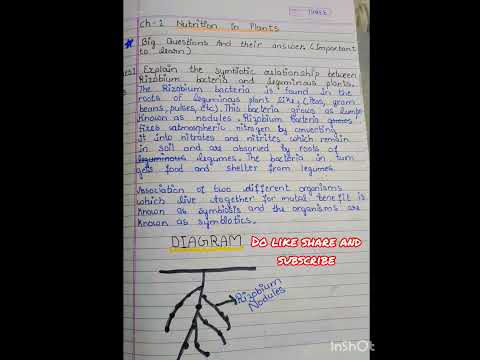 THREE
Ch-1 Nutrition in Plants
Big Questions And their answers (Important
to learn)
Explain the symbiotic relationship between
Rizobium bacteria and leguminous plants.
The Rizobium bacteria is found in the
roots of leguminous plant like, (Peas, gram
beans, pulses, etc). This bacteria grows as lumps
Known as nodules. Rizobium bacteria
fixes satmospheric nitrogen by converting
it into nitrates and nitrites which remain
in soil and are absorved by roots of
leguminous legumes. The bacteria in turn
gets food and shelter from legumes.
Association of two different organisms
which live together for mutal benefit is
Known as symbiosis and the organisms are
Known as symbiotics.
DIAGRAM
DO LIKE SHARE AND
SUBSCRIBE
Rizobium
Nodules
InShOt